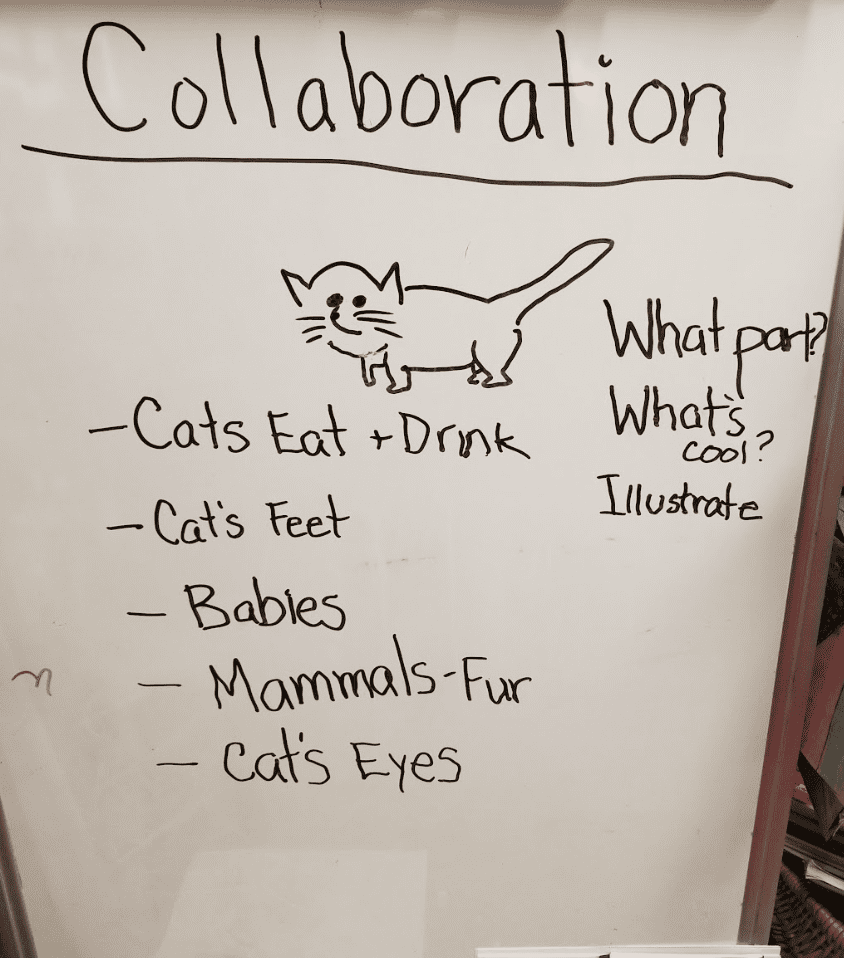 Collaboration
What part?
What's
cool?
Illustrate
- Cats Eat + Drink
- Cat's Feet
- Babies
- Mammals - Fur
- Cat's Eyes